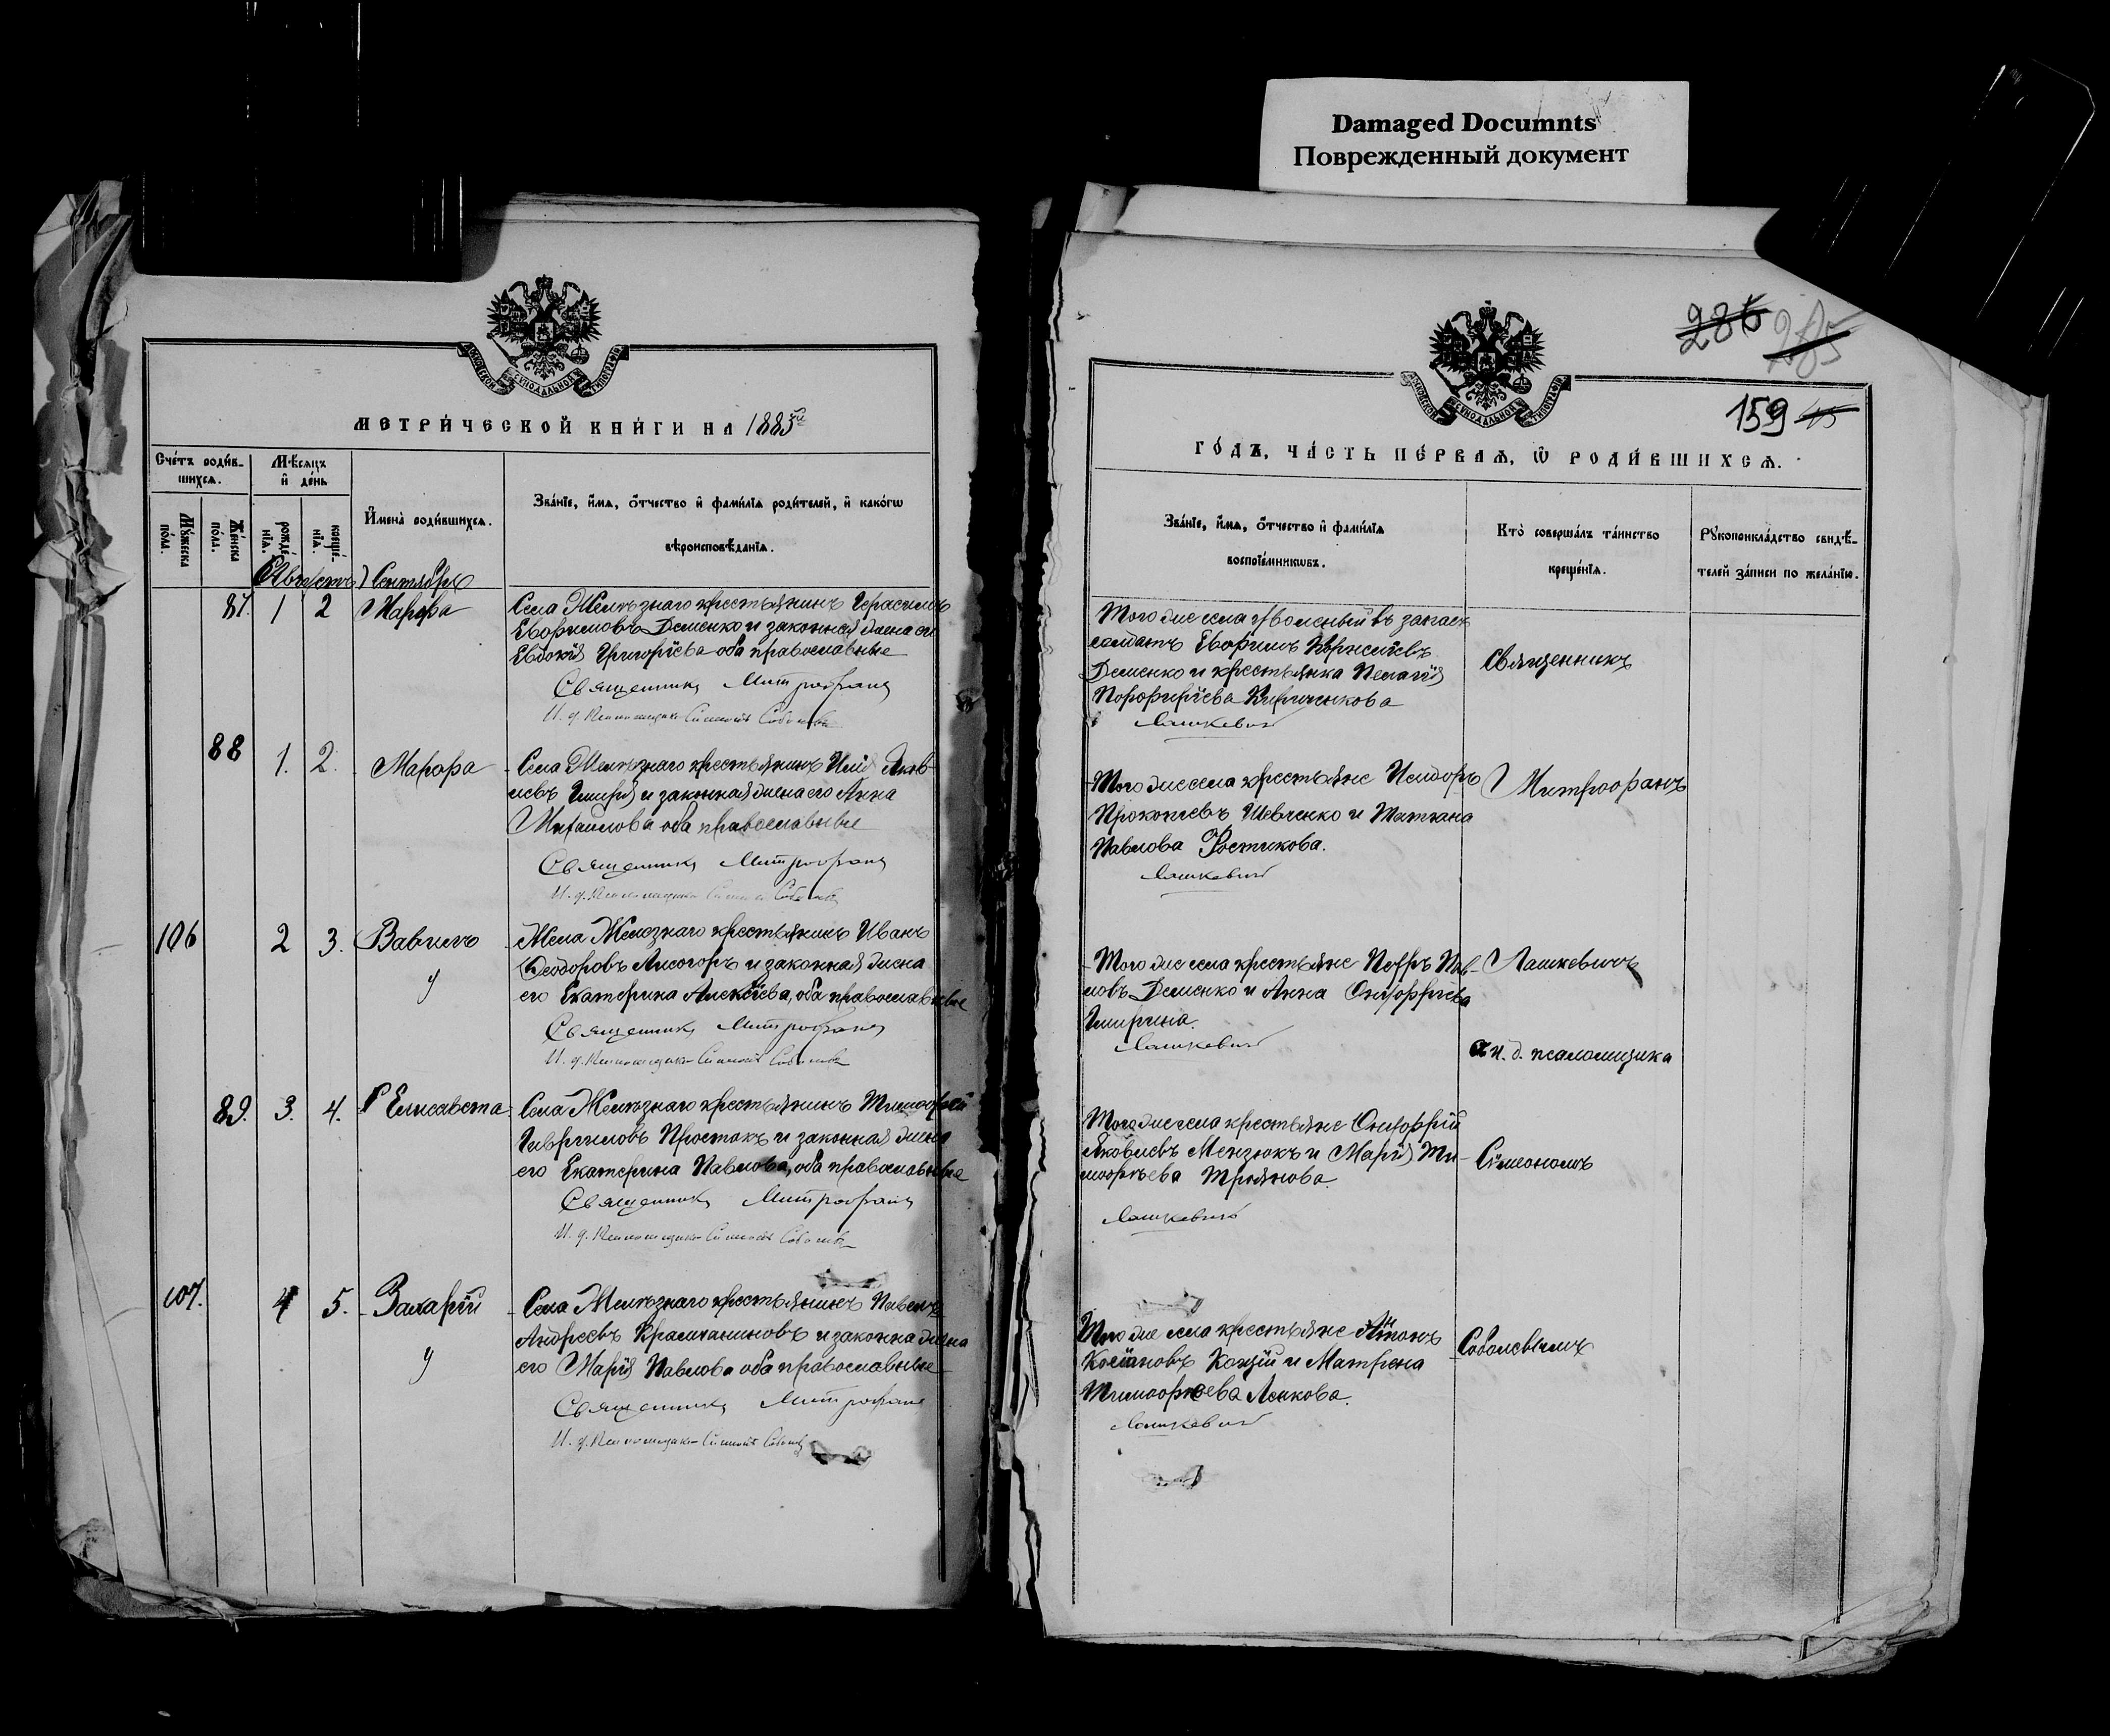 Damaged Documnts
Поврежденный документ
МОСКОВСКОЙ СѴНОДАЛЬНОЙ ТИПОГРАФІИ
МЕТРИ́ЧЕСКОЙ КНИ́ГИ НА 1885й
Сче́тъ роди́в-
шихсѧ.
Мѣсѧцъ
и҆ де́нь
Мꙋ́жеска по́ла.
Же́нска по́ла.
рожде́-
нїѧ.
креще́-
нїѧ.
И҆мена̀ роди́вшихсѧ.
Зва́нїе, и҆́мѧ, ѻ҆́тчество и҆ фами́лїѧ роди́телей, и҆ како́гѡ
вѣроисповѣ́данїѧ.
Сентябрь
87. 1 2 Марфа
Села Желѣзнаго крестьянинъ Герасимъ
Евфимовъ Деменко и законная жена его
Евдокія Григоріева оба православные
Священникъ Митрофанъ
И. д. Псаломщика Симеонъ Соболевъ
88 1. 2. Марфа
Села Желѣзнаго крестьянинъ Илія Яков-
левъ Гмиря и законная жена его Анна
Михаилова оба православные
Священникъ Митрофанъ
И. д. Псаломщика Симеонъ Соболевъ
106 2 3. Вавилъ
у
Села Желѣзнаго крестьянинъ Иванъ
Ѳеодоровъ Лисогоръ и законная жена
его Екатерина Алексіева, оба православные
Священникъ Митрофанъ
И. д. Псаломщика Симеонъ Соболевъ
89. 3. 4. Елисавета
Села Желѣзнаго крестьянинъ Тимофей
Гавриловъ Простакъ и законная жена
его Екатерина Павлова, оба православные
Священникъ Митрофанъ
И. д. Псаломщика Симеонъ Соболевъ
107. 4 5. Захарій
у
Села Желѣзнаго крестьянинъ Павелъ
Андреевъ и законна жена
его Марія Павлова оба православные
Священникъ Митрофанъ
И. д. Псаломщика Симеонъ Соболевъ
286 285
159 45
МОСКОВСКОЙ СѴНОДАЛЬНОЙ ТИПОГРАФІИ
ГО́ДЪ, ЧА́СТЬ ПЕ́РВАѦ, Ѡ҆ РОДИ́ВШИХСѦ.
Зва́нїе, и҆́мѧ, ѻ҆́тчество и҆ фами́лїѧ
воспрїе́мникѡвъ.
Кто̀ соверша́лъ та́инство
креще́нїѧ.
Рꙋкоприкла́дство свидѣ́-
телей за́писи по жела́нїю.
Того же села уволеный въ запасъ
солдатъ Евфимъ
Деменко и крестьянка Пелагія
Порфиріева Кириченкова
Лашкевичъ
Священникъ
Того же села крестьяне Исидоръ
Прокопіевъ Шевченко и Татіана
Павлова Фостикова.
Лашкевичъ
Митрофанъ
Того же села крестьяне Петръ Пав-
ловъ Деменко и Анна Онуфріева
Гмирина.
Лашкевичъ
Лашкевичъ
и. д. псаломщика
Того же села крестьяне Онуфрій
Яковлевъ Мензюкъ и Марія Ти-
мофѣева Троянова.
Лашкевичъ
Симеономъ
Того же села крестьяне Антонъ
Косіановъ Коцій и Матрена
Тимофѣева Ленкова.
Лашкевичъ
Соболевымъ